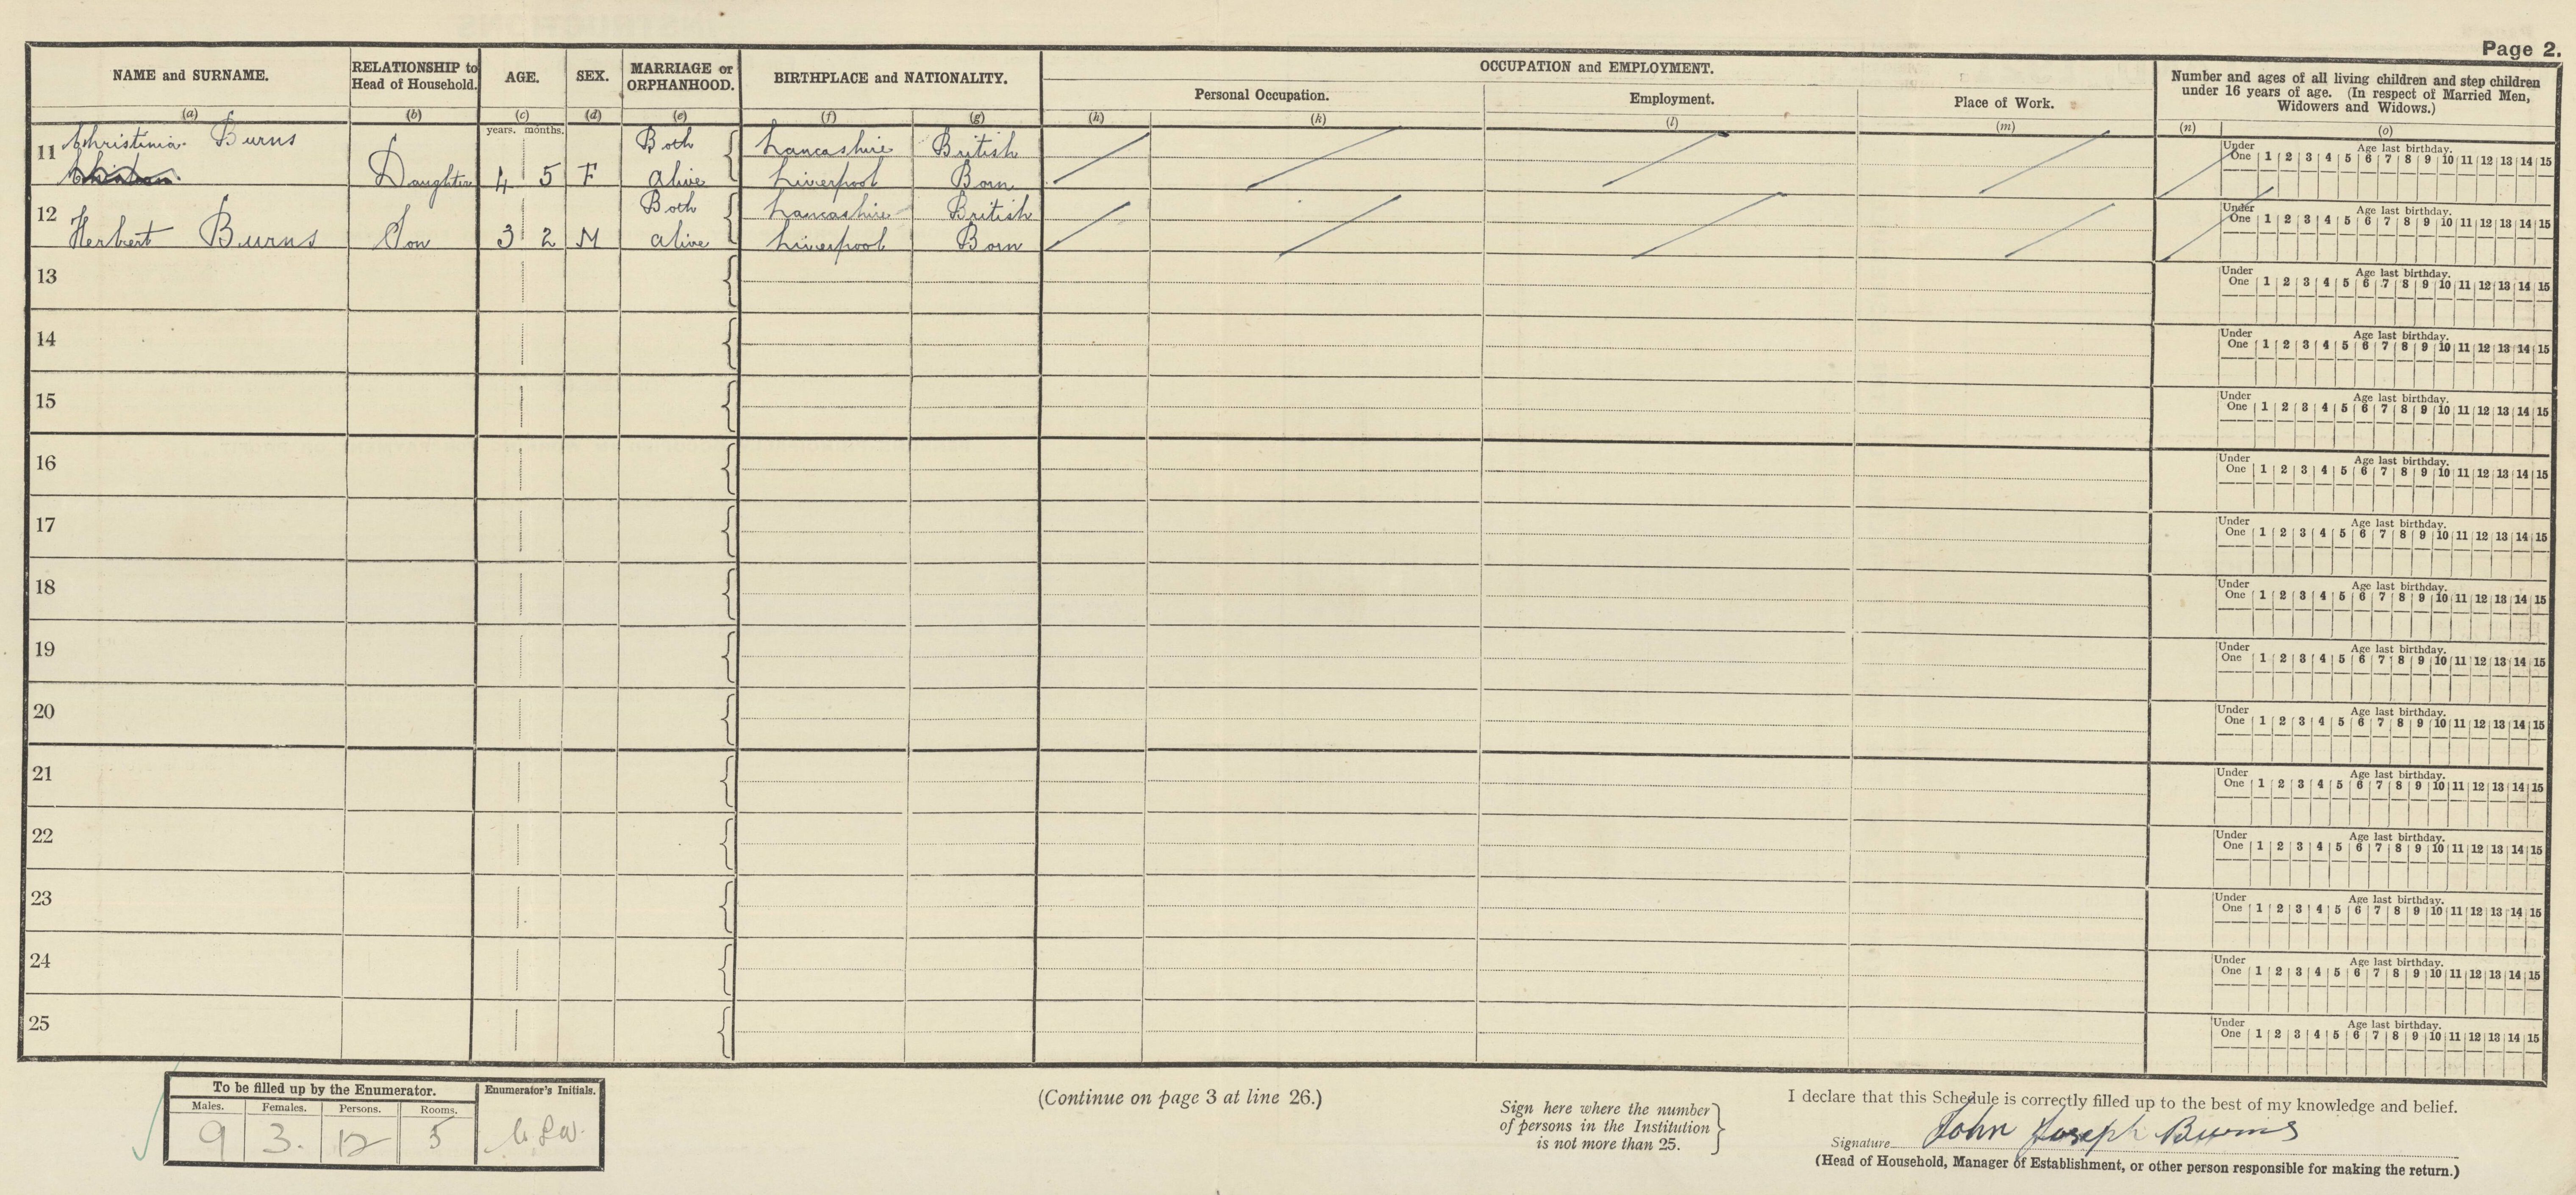 Page 2.
NAME and SURNAME.
RELATIONSHIP to Head of Household.
AGE.
SEX.
MARRIAGE or ORPHANHOOD.
BIRTHPLACE and NATIONALITY.
OCCUPATION and EMPLOYMENT.
Personal Occupation.
Employment.
Place of Work.
Number and ages of all living children and step children
under 16 years of age. (In respect of Married Men,
Widowers and Widows.)
(a) (b) (c) (d) (e) (f) (g) (h) (k) (l) (m) (n) (o)
years. months.
11 Christinia Burns Daughter 4 5 F Both alive Lancashire Liverpool British Born
Under One 1 2 3 4 5 6 7 8 9 10 11 12 13 14 15 Age last birthday.
12 Herbert Burns Son 3 2 M Both alive Lancashire Liverpool British Born
Under One 1 2 3 4 5 6 7 8 9 10 11 12 13 14 15 Age last birthday.
13 Under One 1 2 3 4 5 6 7 8 9 10 11 12 13 14 15 Age last birthday.
14 Under One 1 2 3 4 5 6 7 8 9 10 11 12 13 14 15 Age last birthday.
15 Under One 1 2 3 4 5 6 7 8 9 10 11 12 13 14 15 Age last birthday.
16 Under One 1 2 3 4 5 6 7 8 9 10 11 12 13 14 15 Age last birthday.
17 Under One 1 2 3 4 5 6 7 8 9 10 11 12 13 14 15 Age last birthday.
18 Under One 1 2 3 4 5 6 7 8 9 10 11 12 13 14 15 Age last birthday.
19 Under One 1 2 3 4 5 6 7 8 9 10 11 12 13 14 15 Age last birthday.
20 Under One 1 2 3 4 5 6 7 8 9 10 11 12 13 14 15 Age last birthday.
21 Under One 1 2 3 4 5 6 7 8 9 10 11 12 13 14 15 Age last birthday.
22 Under One 1 2 3 4 5 6 7 8 9 10 11 12 13 14 15 Age last birthday.
23 Under One 1 2 3 4 5 6 7 8 9 10 11 12 13 14 15 Age last birthday.
24 Under One 1 2 3 4 5 6 7 8 9 10 11 12 13 14 15 Age last birthday.
25 Under One 1 2 3 4 5 6 7 8 9 10 11 12 13 14 15 Age last birthday.
To be filled up by the Enumerator.
Enumerator's Initials.
Males. Females. Persons. Rooms.
9 3. 12 5
(Continue on page 3 at line 26.)
Sign here where the number
of persons in the Institution
is not more than 25.
I declare that this Schedule is correctly filled up to the best of my knowledge and belief.
Signature John Joseph Burns
(Head of Household, Manager of Establishment, or other person responsible for making the return.)